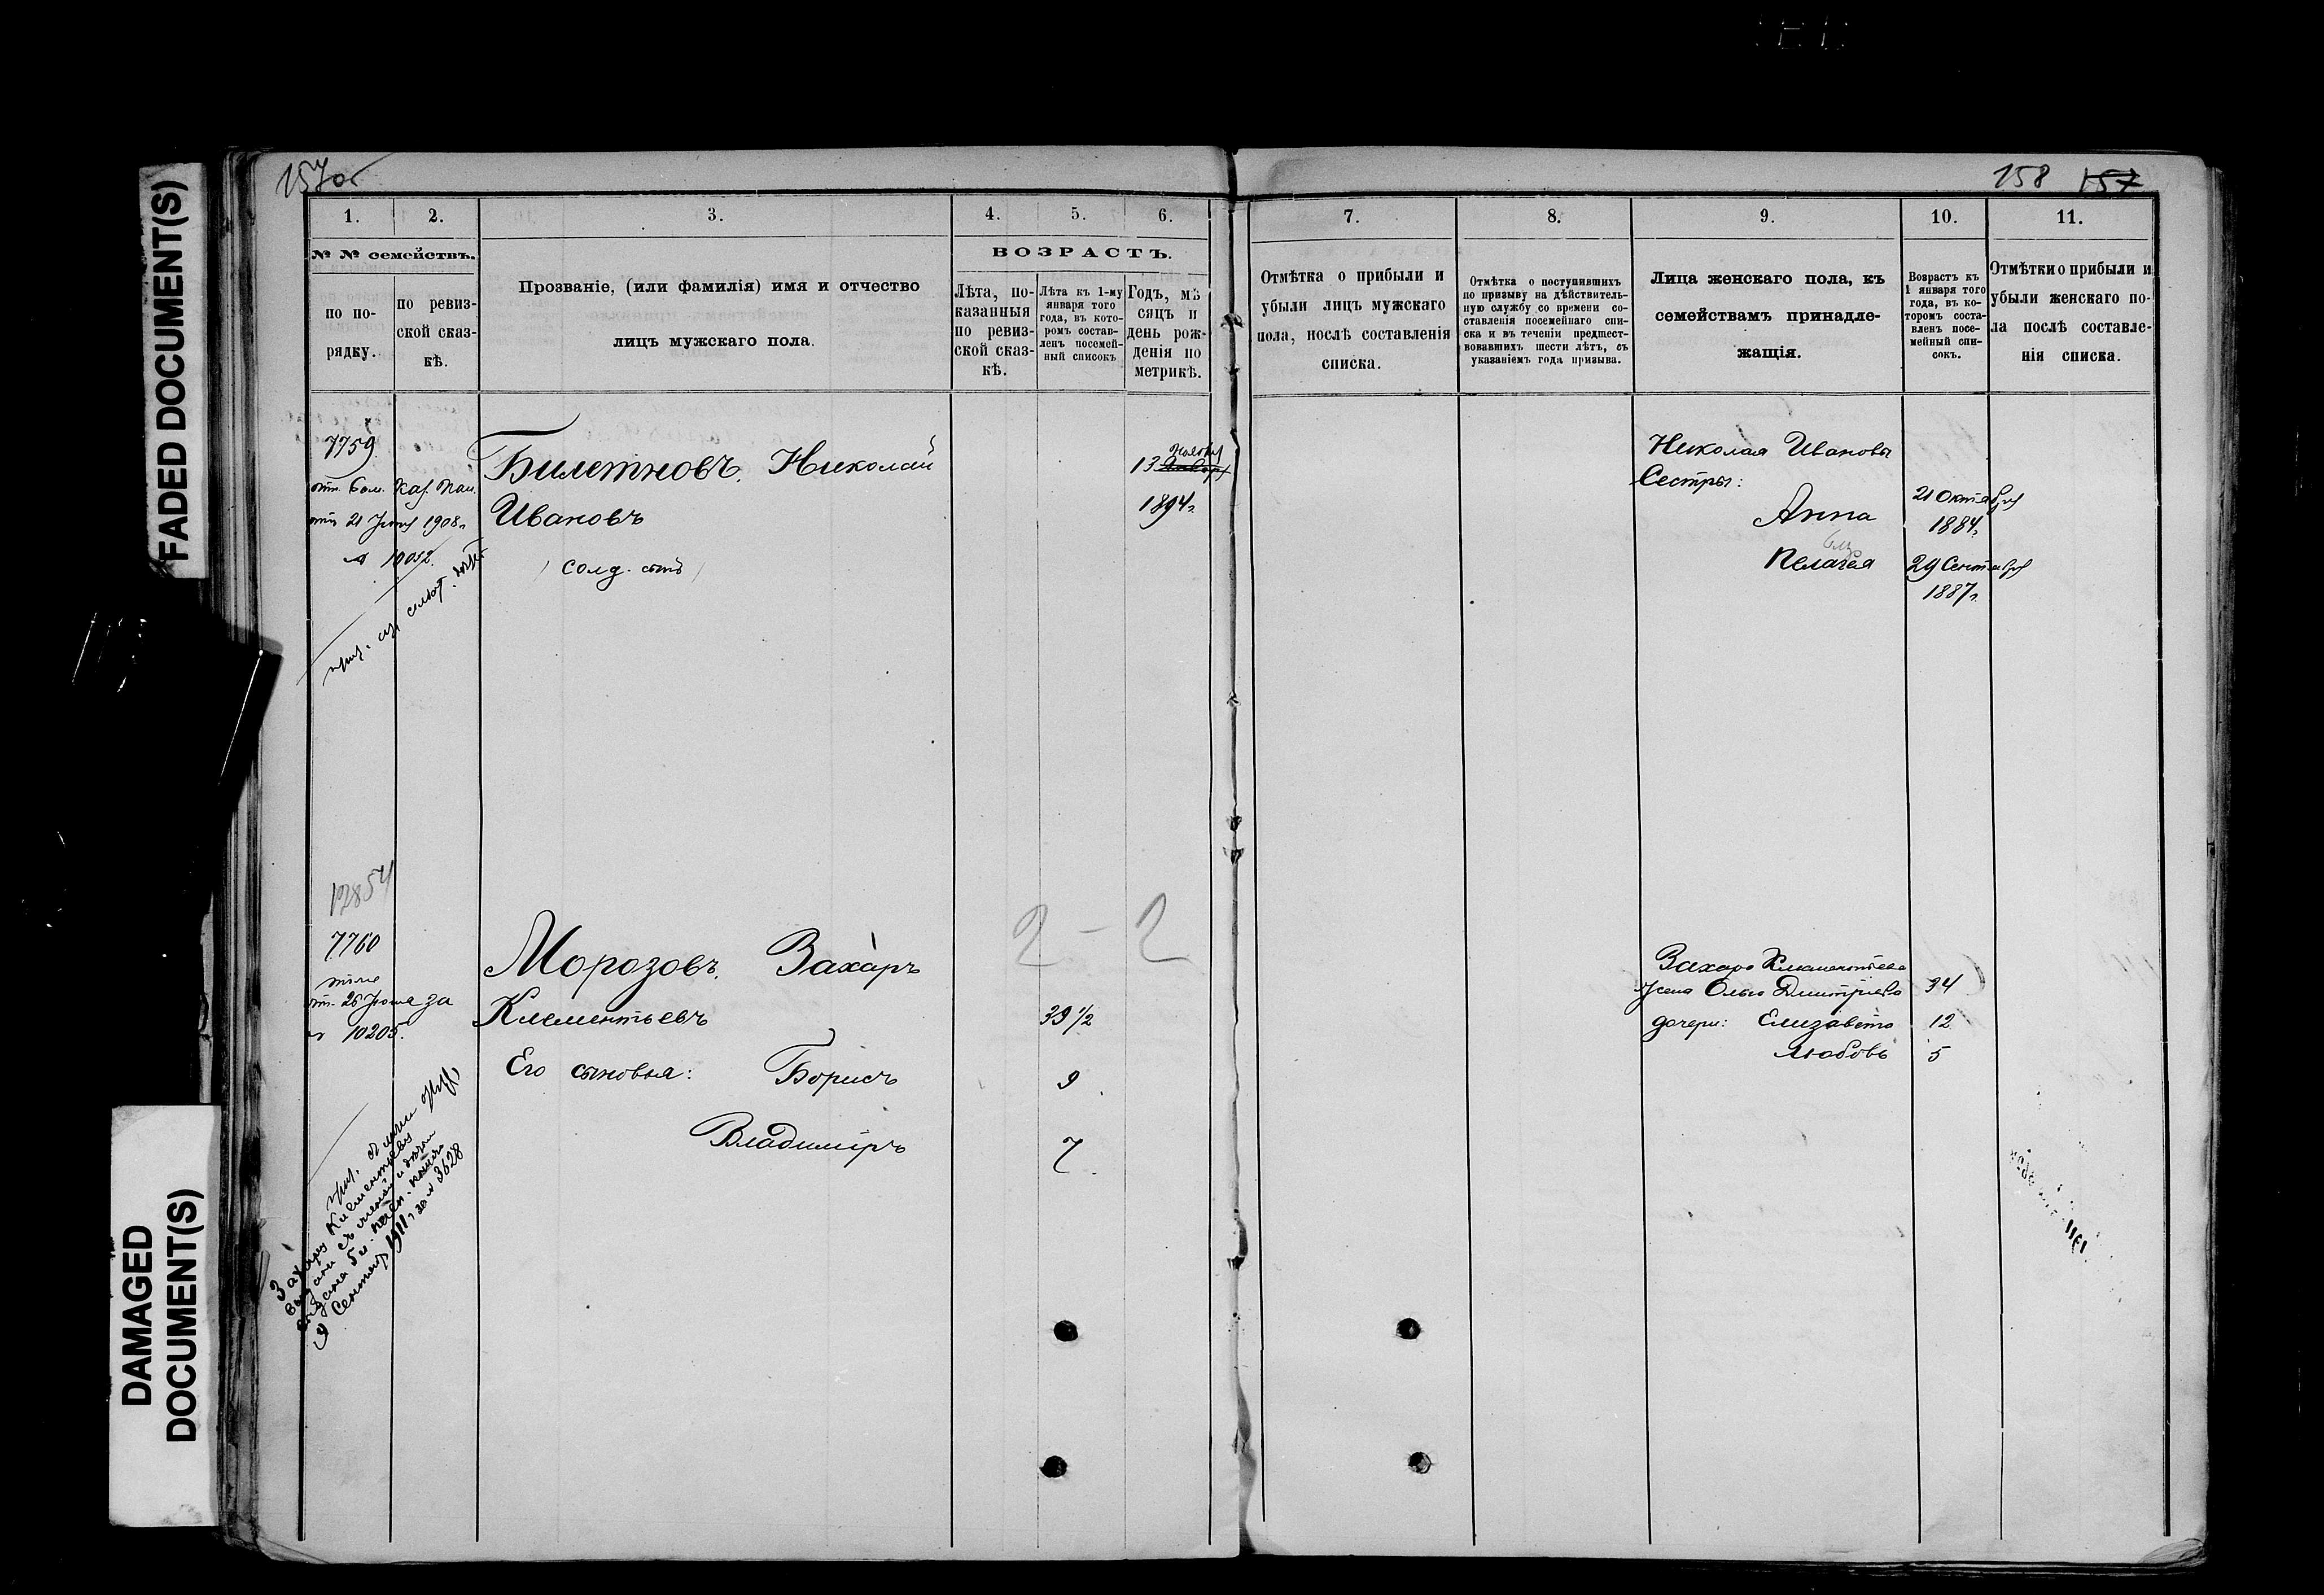 FADED DOCUMENT(S)
DAMAGED
DOCUMENT(S)
157об
1.
2.
3.
4.
5.
6.
№ № семействъ.
по по-
рядку.
по ревиз-
ской сказ-
кѣ.
Прозваніе, (или фамилія) имя и отчество
лицъ мужскаго пола.
ВОЗРАСТЪ.
Лѣта, по-
казанныя
по ревиз-
ской сказ-
кѣ.
Лѣта къ 1-му
января того
года, въ кото-
ромъ состав-
ленъ посемей-
ный списокъ
Годъ, мѣ
сяцъ и
день рож-
денія по
метрикѣ.
7759
отн. Каз. Пал.
отъ 21 1908 г.
№ 10032
Билетновъ, Николай
Ивановъ
солд. сынъ
13 Ноября
1894 г.
12854
7760
отн. 26 Іюня за
№ 10205.
Морозовъ, Захаръ
Клементьевъ
39 1/2
Его сыновья: Борисъ
9
Владиміръ
7
2 - 2
Захару Клементьеву
съ женой и
1911 г. за № 3628
158 157
7.
8.
9.
10.
11.
Отмѣтка о прибыли и
убыли лицъ мужскаго
пола, послѣ составленія
списка.
Отмѣтка о поступившихъ
по призыву на дѣйствитель-
ную службу со времени со-
ставленія посемейнаго спи-
ска и въ теченіи предшест-
вовавшихъ шести лѣтъ, съ
указаніемъ года призыва.
Лица женскаго пола, къ
семействамъ принадле-
жащія.
Возрастъ къ
1 января того
года, въ ко-
торомъ соста-
вленъ посе-
мейный спи-
сокъ.
Отмѣтки о прибыли и
убыли женскаго по-
ла послѣ составле-
нія списка.
Николая Иванова
Сестры:
Анна
21 Октября
1884 г.
Пелагея
29 Сентября
1887 г.
Захара Клементьева
жена Ольга Дмитріева 34
дочери: Елизавета 12
Любовь 5